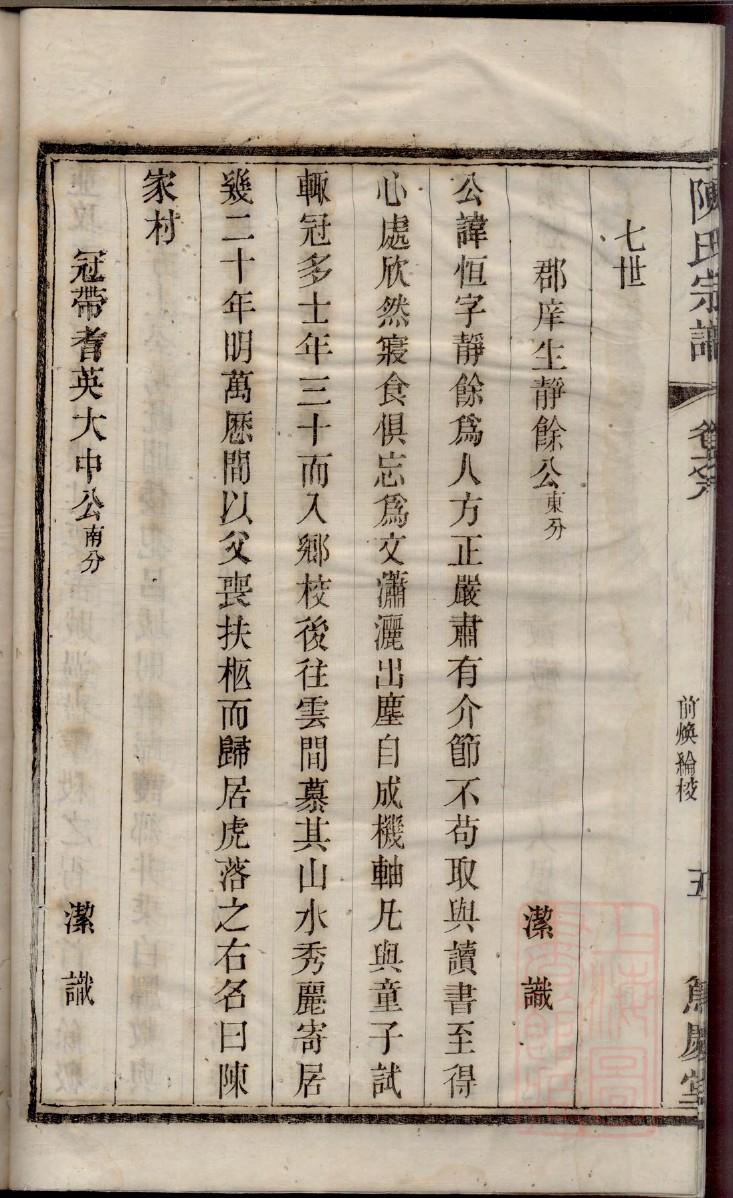 陳氏宗譜
卷之六
前煥綸校
五
篤慶堂
七世
郡庠生靜餘公東分
潔識
公諱恒字靜餘為人方正嚴肅有介節不苟取與讀書至得
心處欣然寢食俱忘為文瀟灑出塵自成機軸凡與童子試
輙冠多士年三十而入鄉校後往雲間慕其山水秀麗寄居
幾二十年明萬厯間以父喪扶柩而歸居虎落之右名曰陳
家村
冠帶耆英大中公南分
潔識